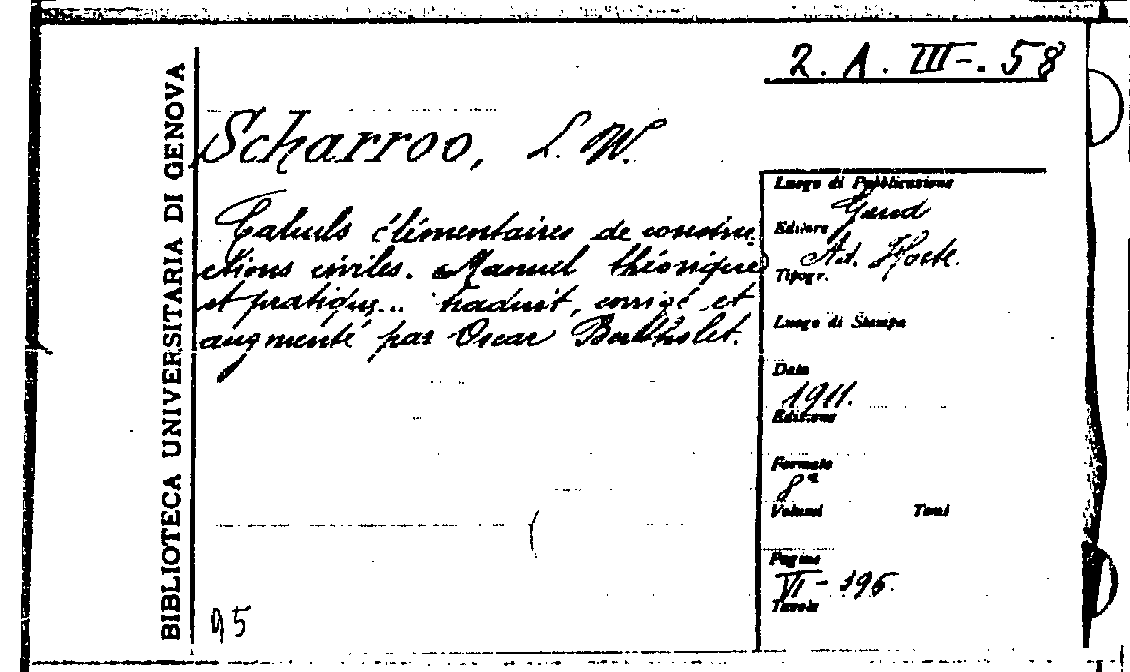 2. A. III-. 58
BIBLIOTECA UNIVERSITARIA DI GENOVA
Scharroo, L. W.
Calculs élémentaires de constru-
ctions civiles. Manuel théorique
et pratique... traduit, corrigé et
augmenté par Oscar Berthelet.
Luogo di Pubblicazione
Gand
Editore
Ad. Hoste.
Tipogr.
Luogo di Stampa
Data
1911.
Edizione
Formato
8°
Volumi Tomi
Pagine
VI - 396.
Tavole
95